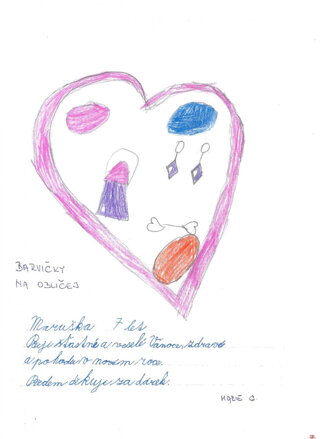 BARVIČKY
NA OBLIČEJ
Maruška 7 let
Přeje šťastné a veselé Vánoce, zdraví
a pohodu v novém roce.
Předem děkuje za dárek.